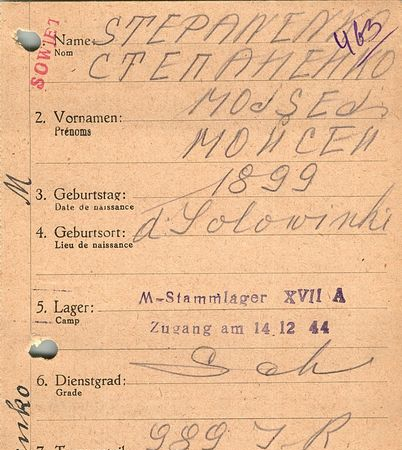 SOWJET
1. Name:
Nom
STEPANENKO
463
СТЕПАНЕНКО
2. Vornamen:
Prénoms
МОИСЕИ
M
3. Geburtstag:
Date de naissance
1899
4. Geburtsort:
Lieu de naissance
d. Solowinki
5. Lager:
Camp
M-Stammlager XVII A
Zugang am 14 12 44
6. Dienstgrad:
Grade
Sch
nko
989 I. R.